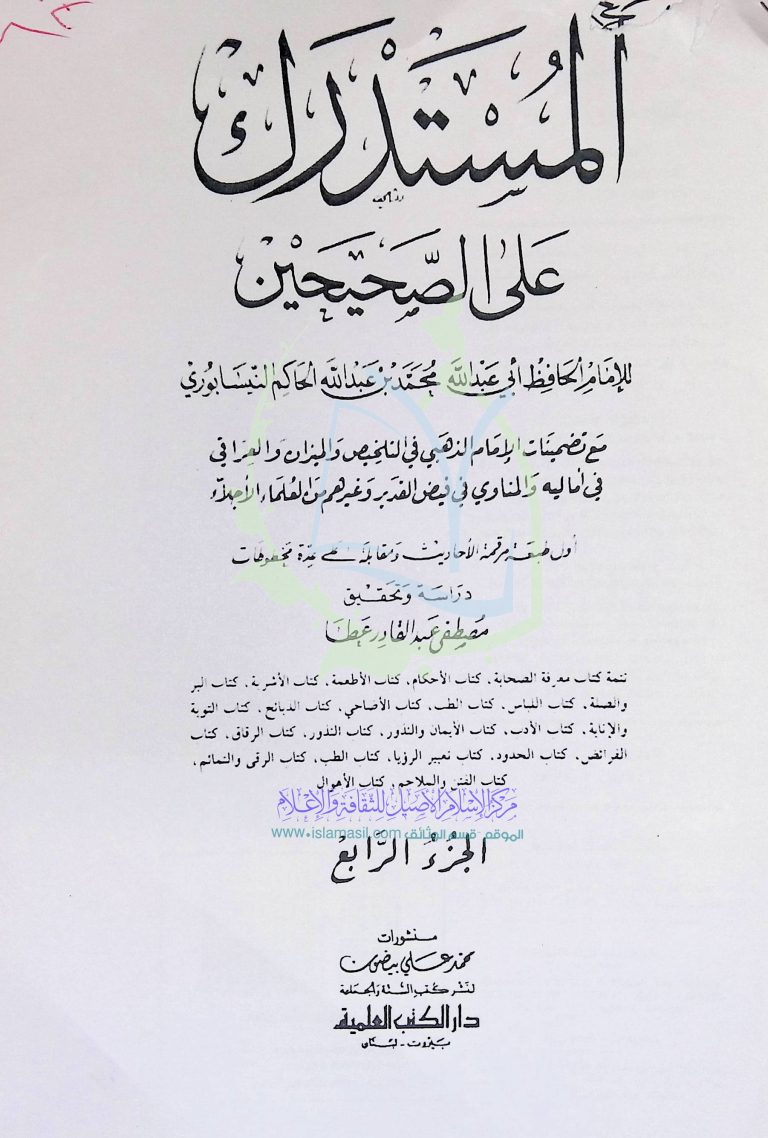 المُسْتَدْرَك
عَلَى الصَّحِيحَيْن
للإمَامِ الحَافِظ أبي عَبْد اللَّه مُحَمَّد بْن عَبْد اللَّه الحَاكِم النّيسَابُوري
مَع تضمِينَات الإمَام الذهَبي في التلخيص وَالميزان وَالعِرَاقي
في أماليه وَالمناوي في فيض القدير وَغيرهم مِن العُلمَاء الأجلّاء
أول طبعَة مرقمة الأحاديث ومقابلة على عدّة مخطوطات
درَاسَة وَتحقِيق
مُصْطفى عَبد القادِر عَطا
تتمة كتاب معرفة الصحابة، كتاب الأحكام، كتاب الأطعمة، كتاب الأشربة، كتاب البر
والصلة، كتاب اللباس، كتاب الطب، كتاب الأضاحي، كتاب الذبائح، كتاب التوبة
والإنابة، كتاب الأدب، كتاب الأيمان والنذور، كتاب النذور، كتاب الرقاق، كتاب
الفرائض، كتاب الحدود، كتاب تعبير الرؤيا، كتاب الطب، كتاب الرقى والتمائم،
كتاب الفتن والملاحم، كتاب الأهوال
مركز الإسلام الأصيل للثقافة والإعلام
الموقع - قسم الوثائق www.islamasil.com
الجُزْءُ الرَّابع
منشورات
محمد علي بيضون
لنشر كتب السنة والجماعة
دار الكتب العلمية
بيروت - لبنان